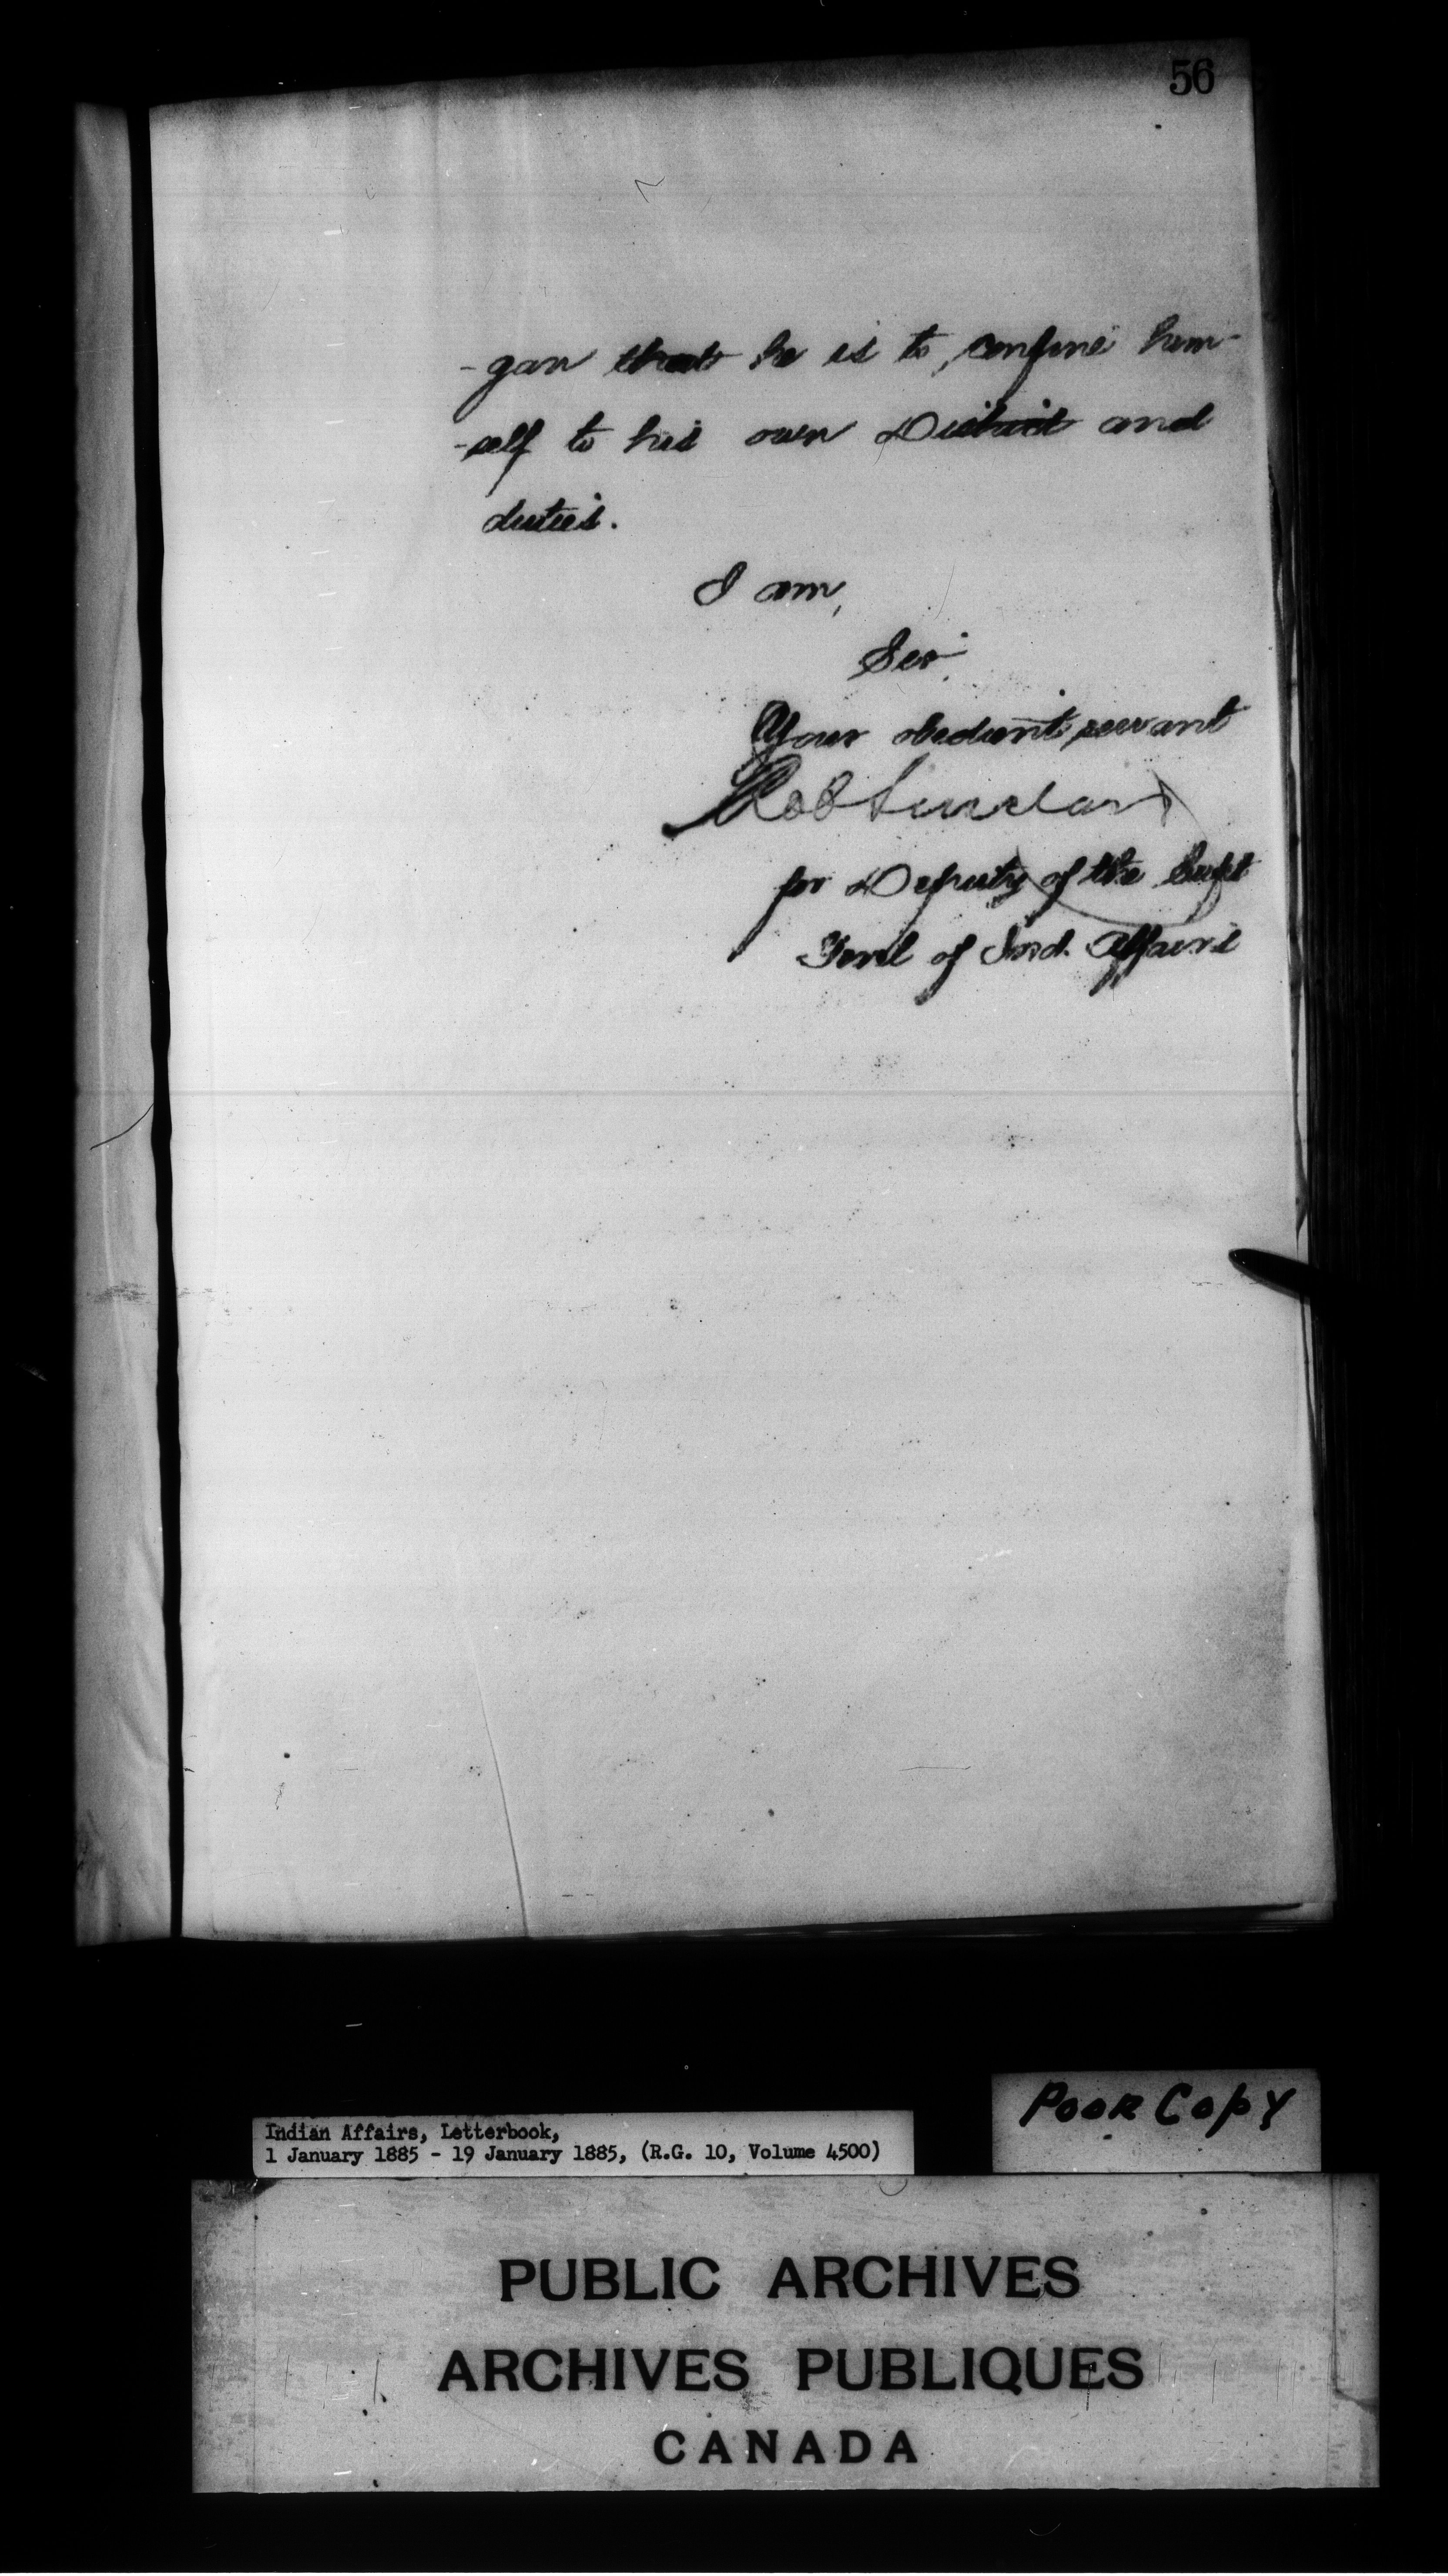 56
-gan that he is to confine him-
-self to his own District and
duties.
I am,
Sir,
Your obedient servant
Rob Sinclair
for Deputy of the Supt
Genl of Ind. Affairs
Poor Copy
Indian Affairs, Letterbook,
1 January 1885 - 19 January 1885, (R.G. 10, Volume 4500)
PUBLIC ARCHIVES
ARCHIVES PUBLIQUES
CANADA